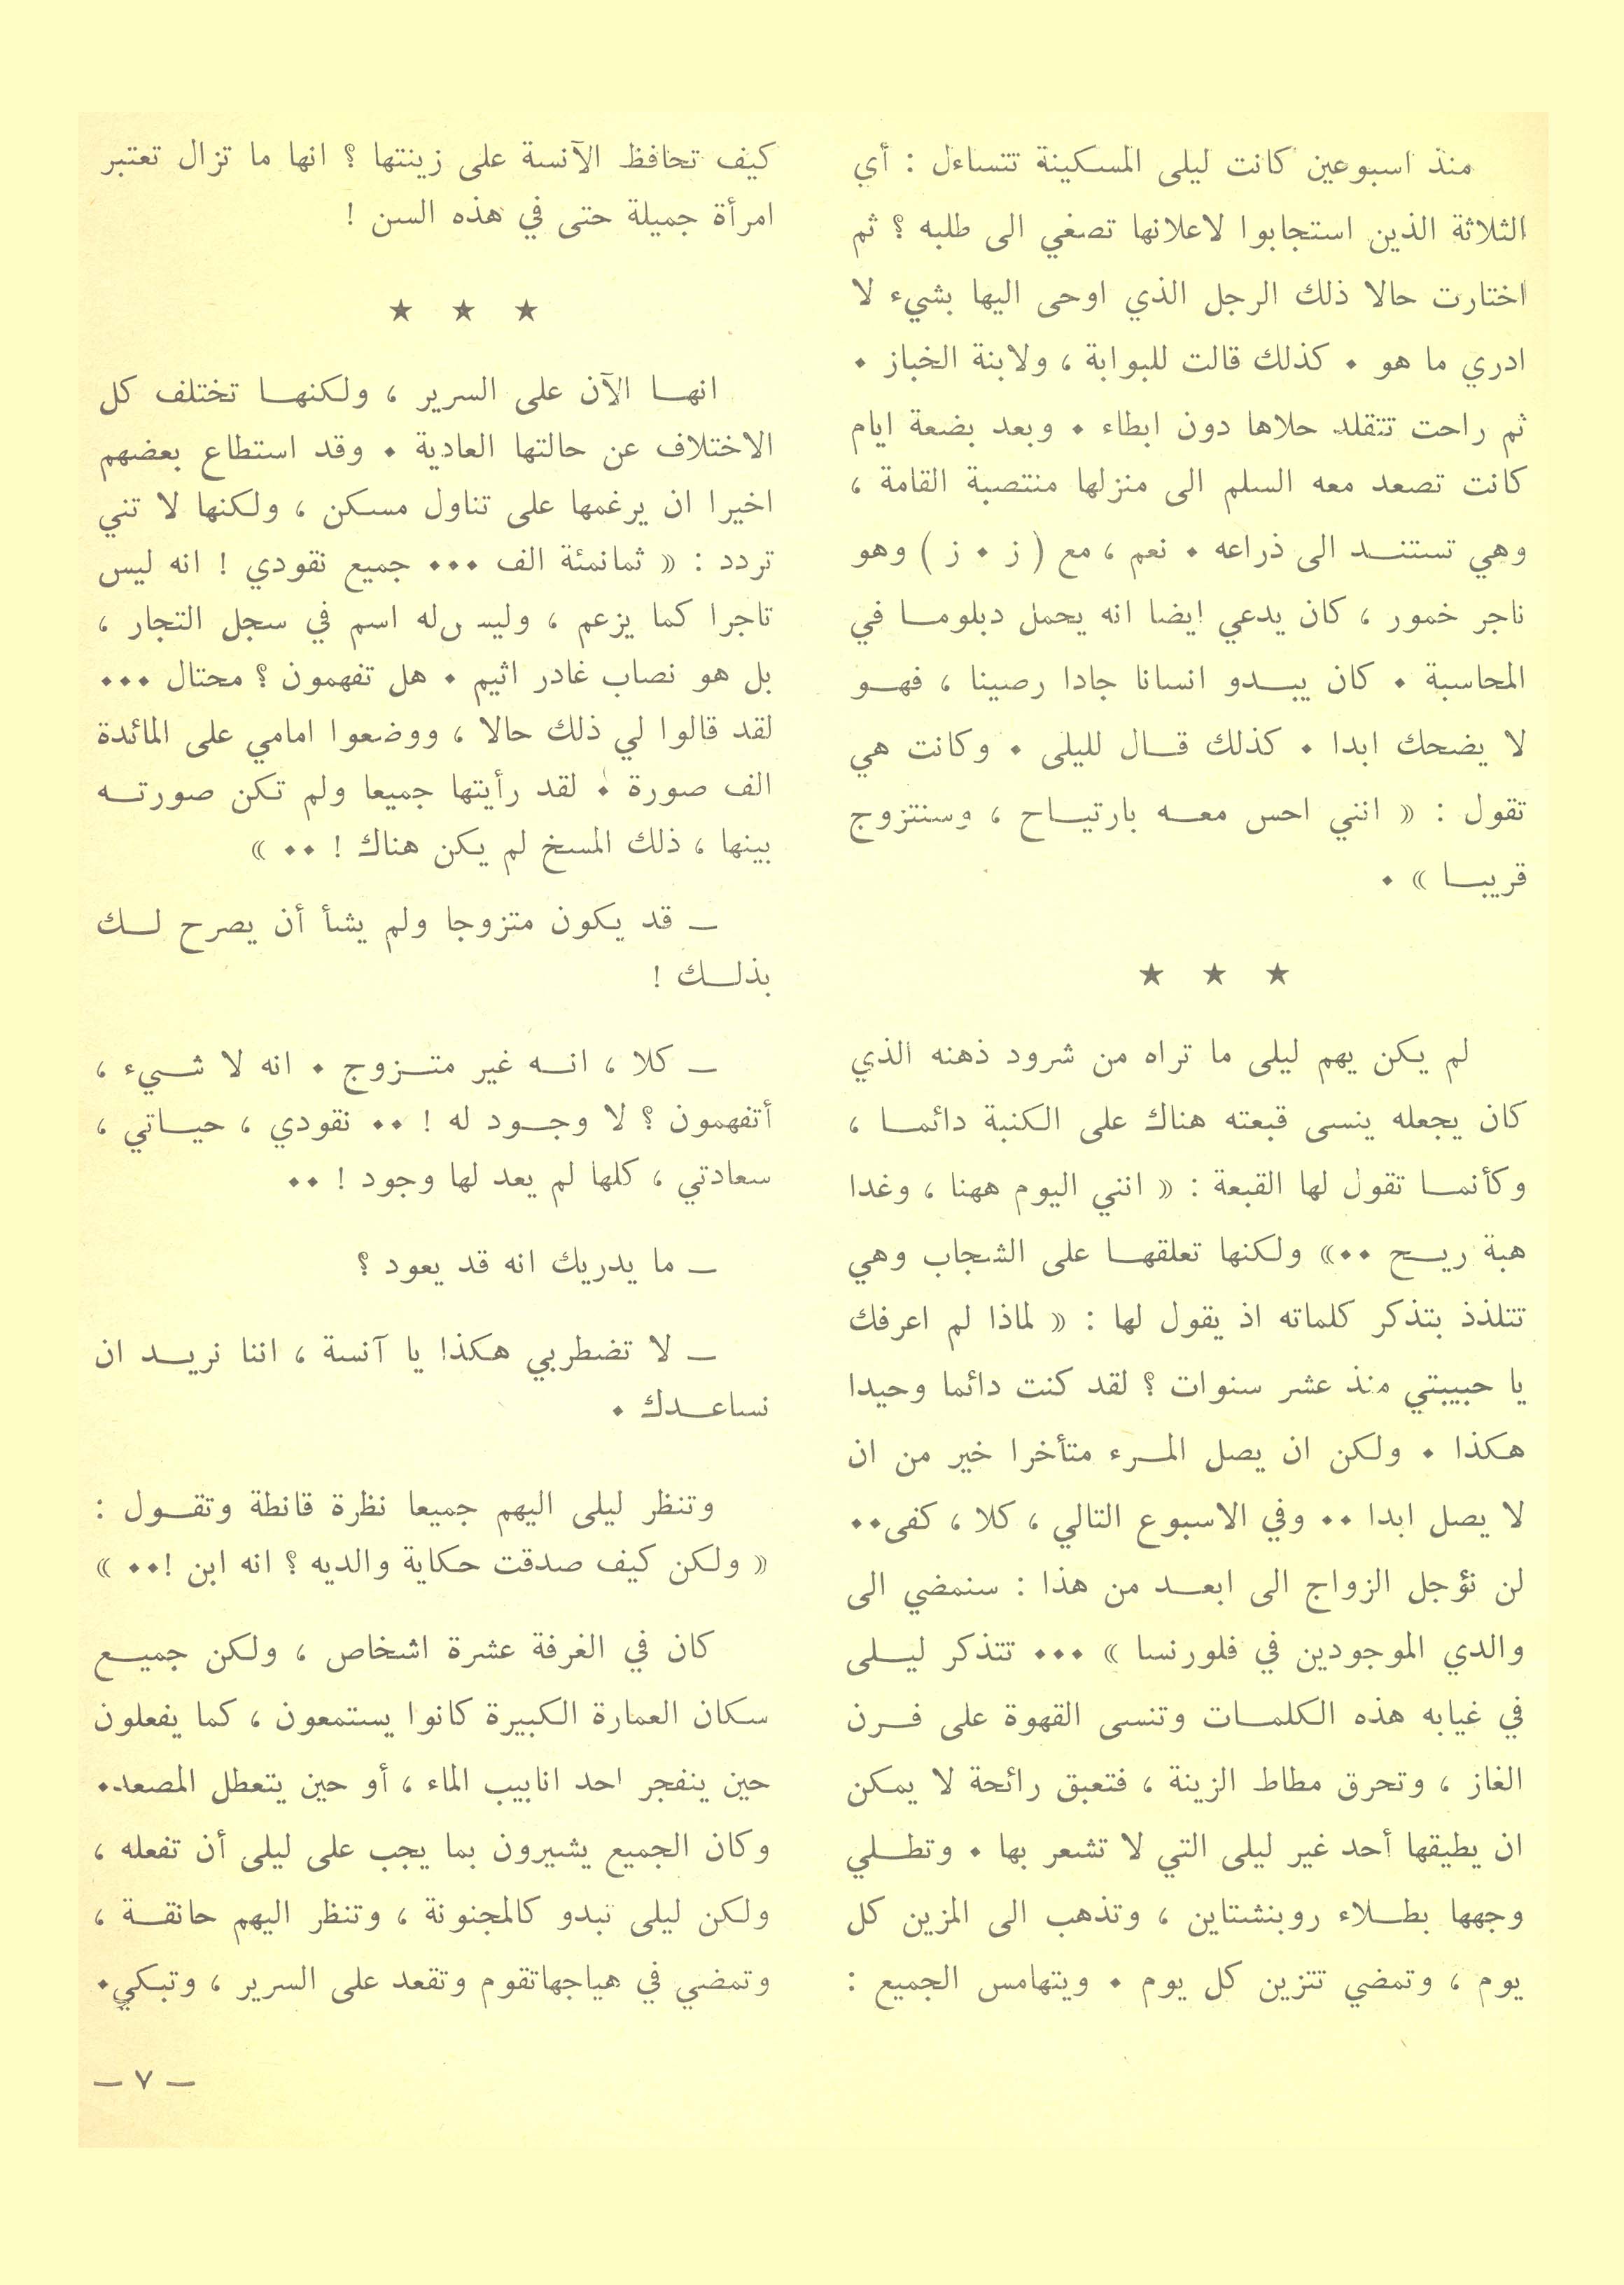 منذ اسبوعين كانت ليلى المسكينة تتساءل : أي
الثلاثة الذين استجابوا لاعلانها تصغي الى طلبه ؟ ثم
اختارت حالا ذلك الرجل الذي اوحى اليها بشيء لا
ادري ما هو . كذلك قالت للبوابة ، ولابنة الخباز .
ثم راحت تتقلد حلاها دون ابطاء . وبعد بضعة ايام
كانت تصعد معه السلم الى منزلها منتصبة القامة ،
وهي تستند الى ذراعه . نعم ، مع ( ز . ز ) وهو
تاجر خمور ، كان يدعي ايضا انه يحمل دبلوما في
المحاسبة . كان يبدو انسانا جادا رصينا ، فهو
لا يضحك ابدا . كذلك قال لليلى . وكانت هي
تقول : « انني احس معه بارتياح ، وسنتزوج
قريبا » .
★ ★ ★
لم يكن يهم ليلى ما تراه من شرود ذهنه الذي
كان يجعله ينسى قبعته هناك على الكنبة دائما ،
وكأنما تقول لها القبعة : « انني اليوم ههنا ، وغدا
هبة ريح ..» ولكنها تعلقها على الشجاب وهي
تتلذذ بتذكر كلماته اذ يقول لها : « لماذا لم اعرفك
يا حبيبتي منذ عشر سنوات ؟ لقد كنت دائما وحيدا
هكذا . ولكن ان يصل المرء متأخرا خير من ان
لا يصل ابدا .. وفي الاسبوع التالي ، كلا ، كفى..
لن نؤجل الزواج الى ابعد من هذا : سنمضي الى
والدي الموجودين في فلورنسا » ... تتذكر ليلى
في غيابه هذه الكلمات وتنسى القهوة على فرن
الغاز ، وتحرق مطاط الزينة ، فتعبق رائحة لا يمكن
ان يطيقها أحد غير ليلى التي لا تشعر بها . وتطلي
وجهها بطلاء روبنشتاين ، وتذهب الى المزين كل
يوم ، وتمضي تتزين كل يوم . ويتهامس الجميع :
كيف تحافظ الآنسة على زينتها ؟ انها ما تزال تعتبر
امرأة جميلة حتى في هذه السن !
★ ★ ★
انها الآن على السرير ، ولكنها تختلف كل
الاختلاف عن حالتها العادية . وقد استطاع بعضهم
اخيرا ان يرغمها على تناول مسكن ، ولكنها لا تني
تردد : « ثمانمئة الف ... جميع نقودي ! انه ليس
تاجرا كما يزعم ، وليس له اسم في سجل التجار ،
بل هو نصاب غادر اثيم . هل تفهمون ؟ محتال ...
لقد قالوا لي ذلك حالا ، ووضعوا امامي على المائدة
الف صورة . لقد رأيتها جميعا ولم تكن صورته
بينها ، ذلك المسخ لم يكن هناك ! .. »
— قد يكون متزوجا ولم يشأ أن يصرح لك
بذلك !
— كلا ، انه غير متزوج . انه لا شيء ،
أتفهمون ؟ لا وجود له ! .. نقودي ، حياتي ،
سعادتي ، كلها لم يعد لها وجود ! ..
— ما يدريك انه قد يعود ؟
— لا تضطربي هكذا يا آنسة ، اننا نريد ان
نساعدك .
وتنظر ليلى اليهم جميعا نظرة قانطة وتقول :
« ولكن كيف صدقت حكاية والديه ؟ انه ابن !.. »
كان في الغرفة عشرة اشخاص ، ولكن جميع
سكان العمارة الكبيرة كانوا يستمعون ، كما يفعلون
حين ينفجر احد انابيب الماء ، أو حين يتعطل المصعد.
وكان الجميع يشيرون بما يجب على ليلى أن تفعله ،
ولكن ليلى تبدو كالمجنونة ، وتنظر اليهم حانقة ،
وتمضي في هياجها تقوم وتقعد على السرير ، وتبكي.
— ٧ —